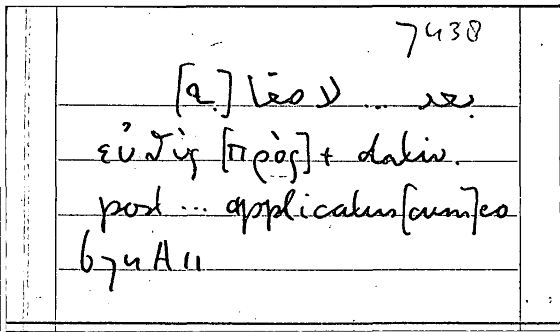 7438
لاصقا ... بعد
εὐθὺς [πρὸς] + dativ.
post ... applicatus [cum] eo
674 A 11